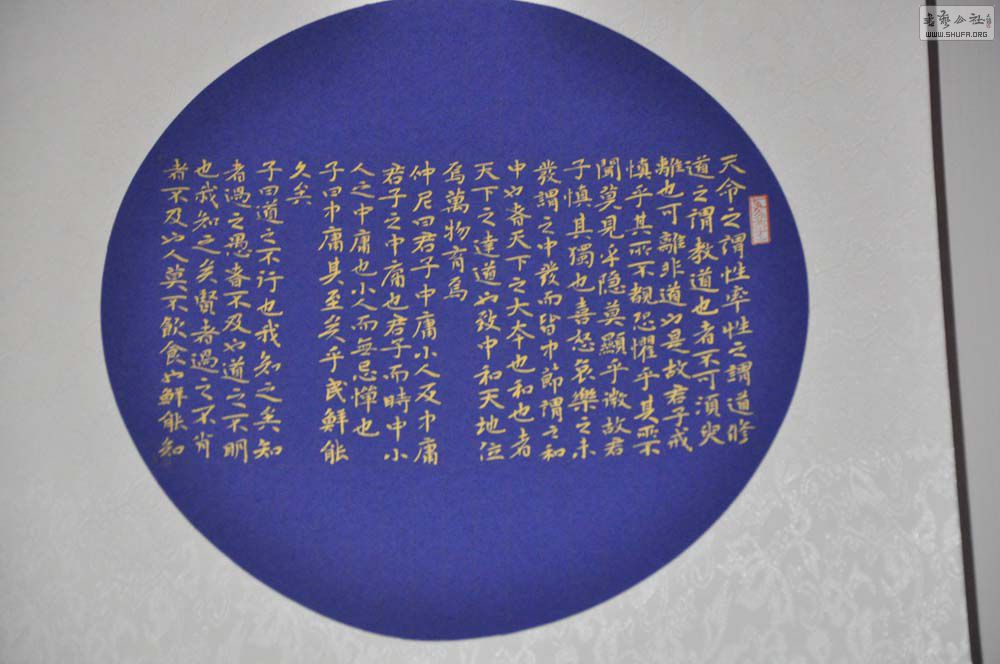 天命之謂性率性之謂道修
道之謂教道也者不可須臾
離也可離非道也是故君子戒
慎乎其所不覩恐懼乎其所不
聞莫見乎隐莫顯乎微故君
子慎其獨也喜怒哀樂之未
發謂之中發而皆中節謂之和
中也者天下之大本也和也者
天下之達道也致中和天地位
焉萬物育焉
仲尼曰君子中庸小人反中庸
君子之中庸也君子而時中小
人之中庸也小人而無忌憚也
子曰中庸其至矣乎民鮮能
久矣
子曰道之不行也我知之矣知
者過之愚者不及也道之不明
也我知之矣賢者過之不肖
者不及也人莫不飲食也鮮能知
WWW.SHUFA.ORG